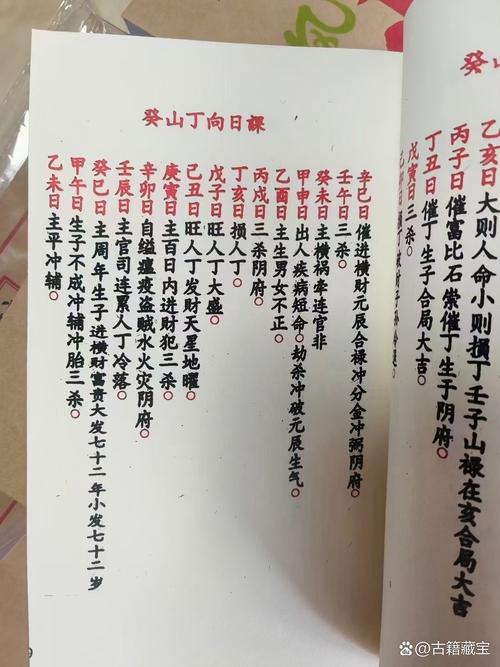 癸山
乙亥日大则人命小则损丁壬子山禄在亥合局大吉
丙子日催富比石崇催丁生子阴府○
丁丑日催丁生子合局大吉○
戊寅日三杀○
癸山丁向日課
辛巳日催进横财元辰合禄冲分金冲弼阴府○
壬午日三杀○
癸未日主横祸牵连官非○
甲申日出人疾病短命劫杀冲破元辰生气○
乙酉日主生男女不正○
丙戌日三杀阴府○
丁亥日损人丁○
戊子日旺人丁大盛○
己丑日旺人丁发财天星地曜○
庚寅日主百日内进财犯三杀○
辛卯日自缢瘟疫盗贼水火灾阴府○
壬辰日主官司连累人丁冷落○
癸巳日主周年生子进横财富贵大发七十二年小发七十二岁
甲午日生子不成冲辅冲胎三杀○
乙未日主平冲辅○
9
古籍藏宝